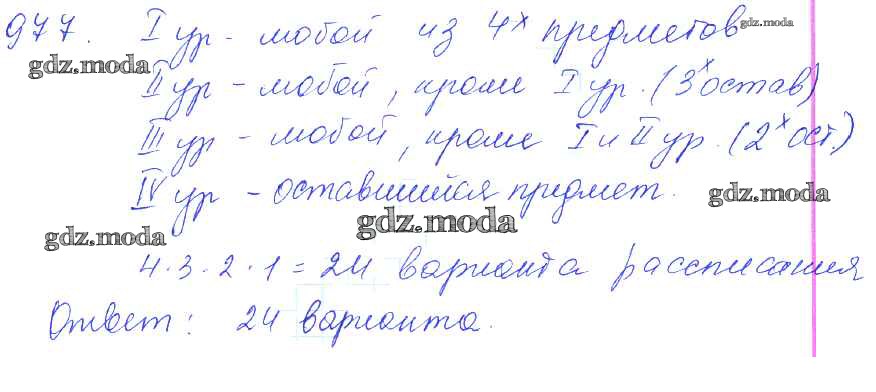 977. I ур - любой из 4х предметов gdz.moda
gdz.moda
II ур - любой, кроме I ур. (3х остав)
III ур - любой, кроме I и II ур. (2х ост.)
IV ур - оставшийся предмет.
gdz.moda gdz.moda gdz.moda
4 · 3 · 2 · 1 = 24 варианта рассписания
Ответ: 24 варианта.